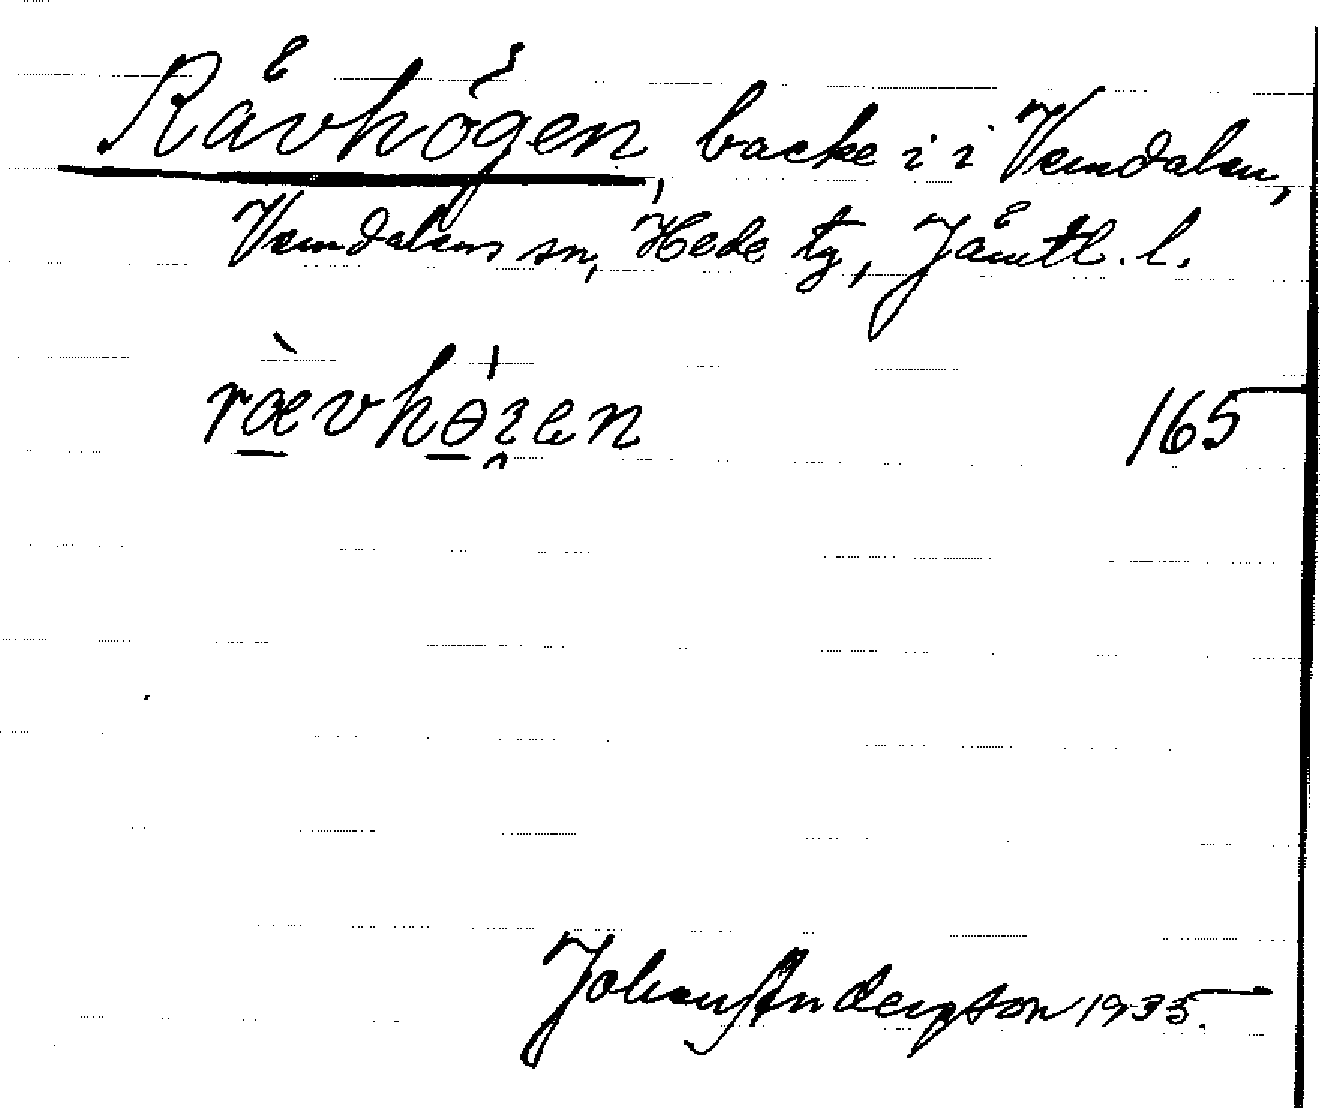 Rävhögen, backe i i Vemdalen,
Vemdalens sn, Hede tg, Jämtl. l.
rævhöʒen 165
Johan Anderson 1935.